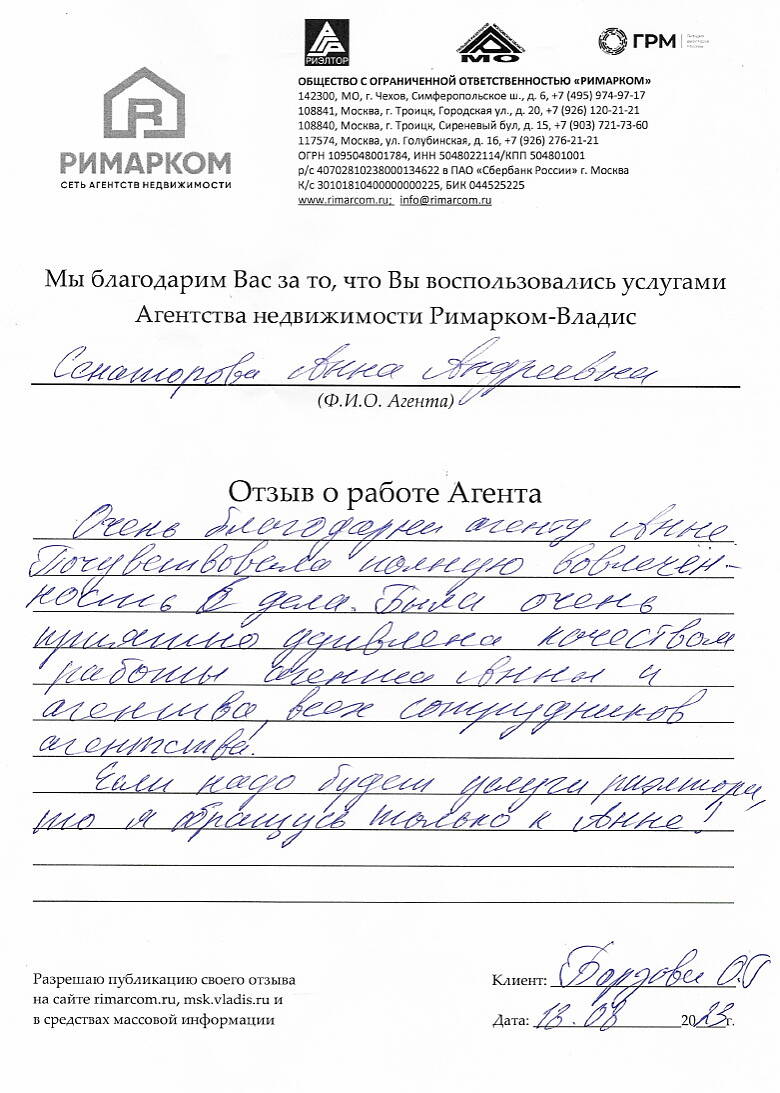 РИЭЛТОР
МО
ГРМ
РИМАРКОМ
СЕТЬ АГЕНТСТВ НЕДВИЖИМОСТИ
ОБЩЕСТВО С ОГРАНИЧЕННОЙ ОТВЕТСТВЕННОСТЬЮ «РИМАРКОМ»
142300, МО, г. Чехов, Симферопольское ш., д. 6, +7 (495) 974-97-17
108841, Москва, г. Троицк, Городская ул., д. 20, +7 (926) 120-21-21
108840, Москва, г. Троицк, Сиреневый бул, д. 15, +7 (903) 721-73-60
117574, Москва, ул. Голубинская, д. 16, +7 (926) 276-21-21
ОГРН 1095048001784, ИНН 5048022114/КПП 504801001
р/с 40702810238000134622 в ПАО «Сбербанк России» г. Москва
К/с 30101810400000000225, БИК 044525225
www.rimarcom.ru; info@rimarcom.ru
Мы благодарим Вас за то, что Вы воспользовались услугами
Агентства недвижимости Римарком-Владис
Сенаторова Анна Андреевна
(Ф.И.О. Агента)
Отзыв о работе Агента
Очень благодарна агенту Анне
Почувствовала полную вовлечён-
ность в дела. Была очень
приятно удивлена качеством
работы агента Анны и
агенства, всех сотрудников
агентства.
Если надо будет услуги риэлтора,
то я обращусь только к Анне!
Разрешаю публикацию своего отзыва
на сайте rimarcom.ru, msk.vladis.ru и
в средствах массовой информации
Клиент: Борзова О.Г
Дата: 13.08 2023г.